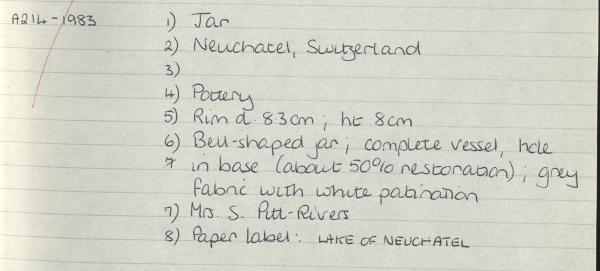 A214-1983 1) Jar
2) Neuchatel, Switzerland
3)
4) Pottery
5) Rim d. 8.3cm; ht 8cm
6) Bell-shaped jar; complete vessel, hole
in base (about 50% restoration); grey
fabric with white patination
7) Mrs. S. Pitt-Rivers
8) Paper label: LAKE OF NEUCHATEL